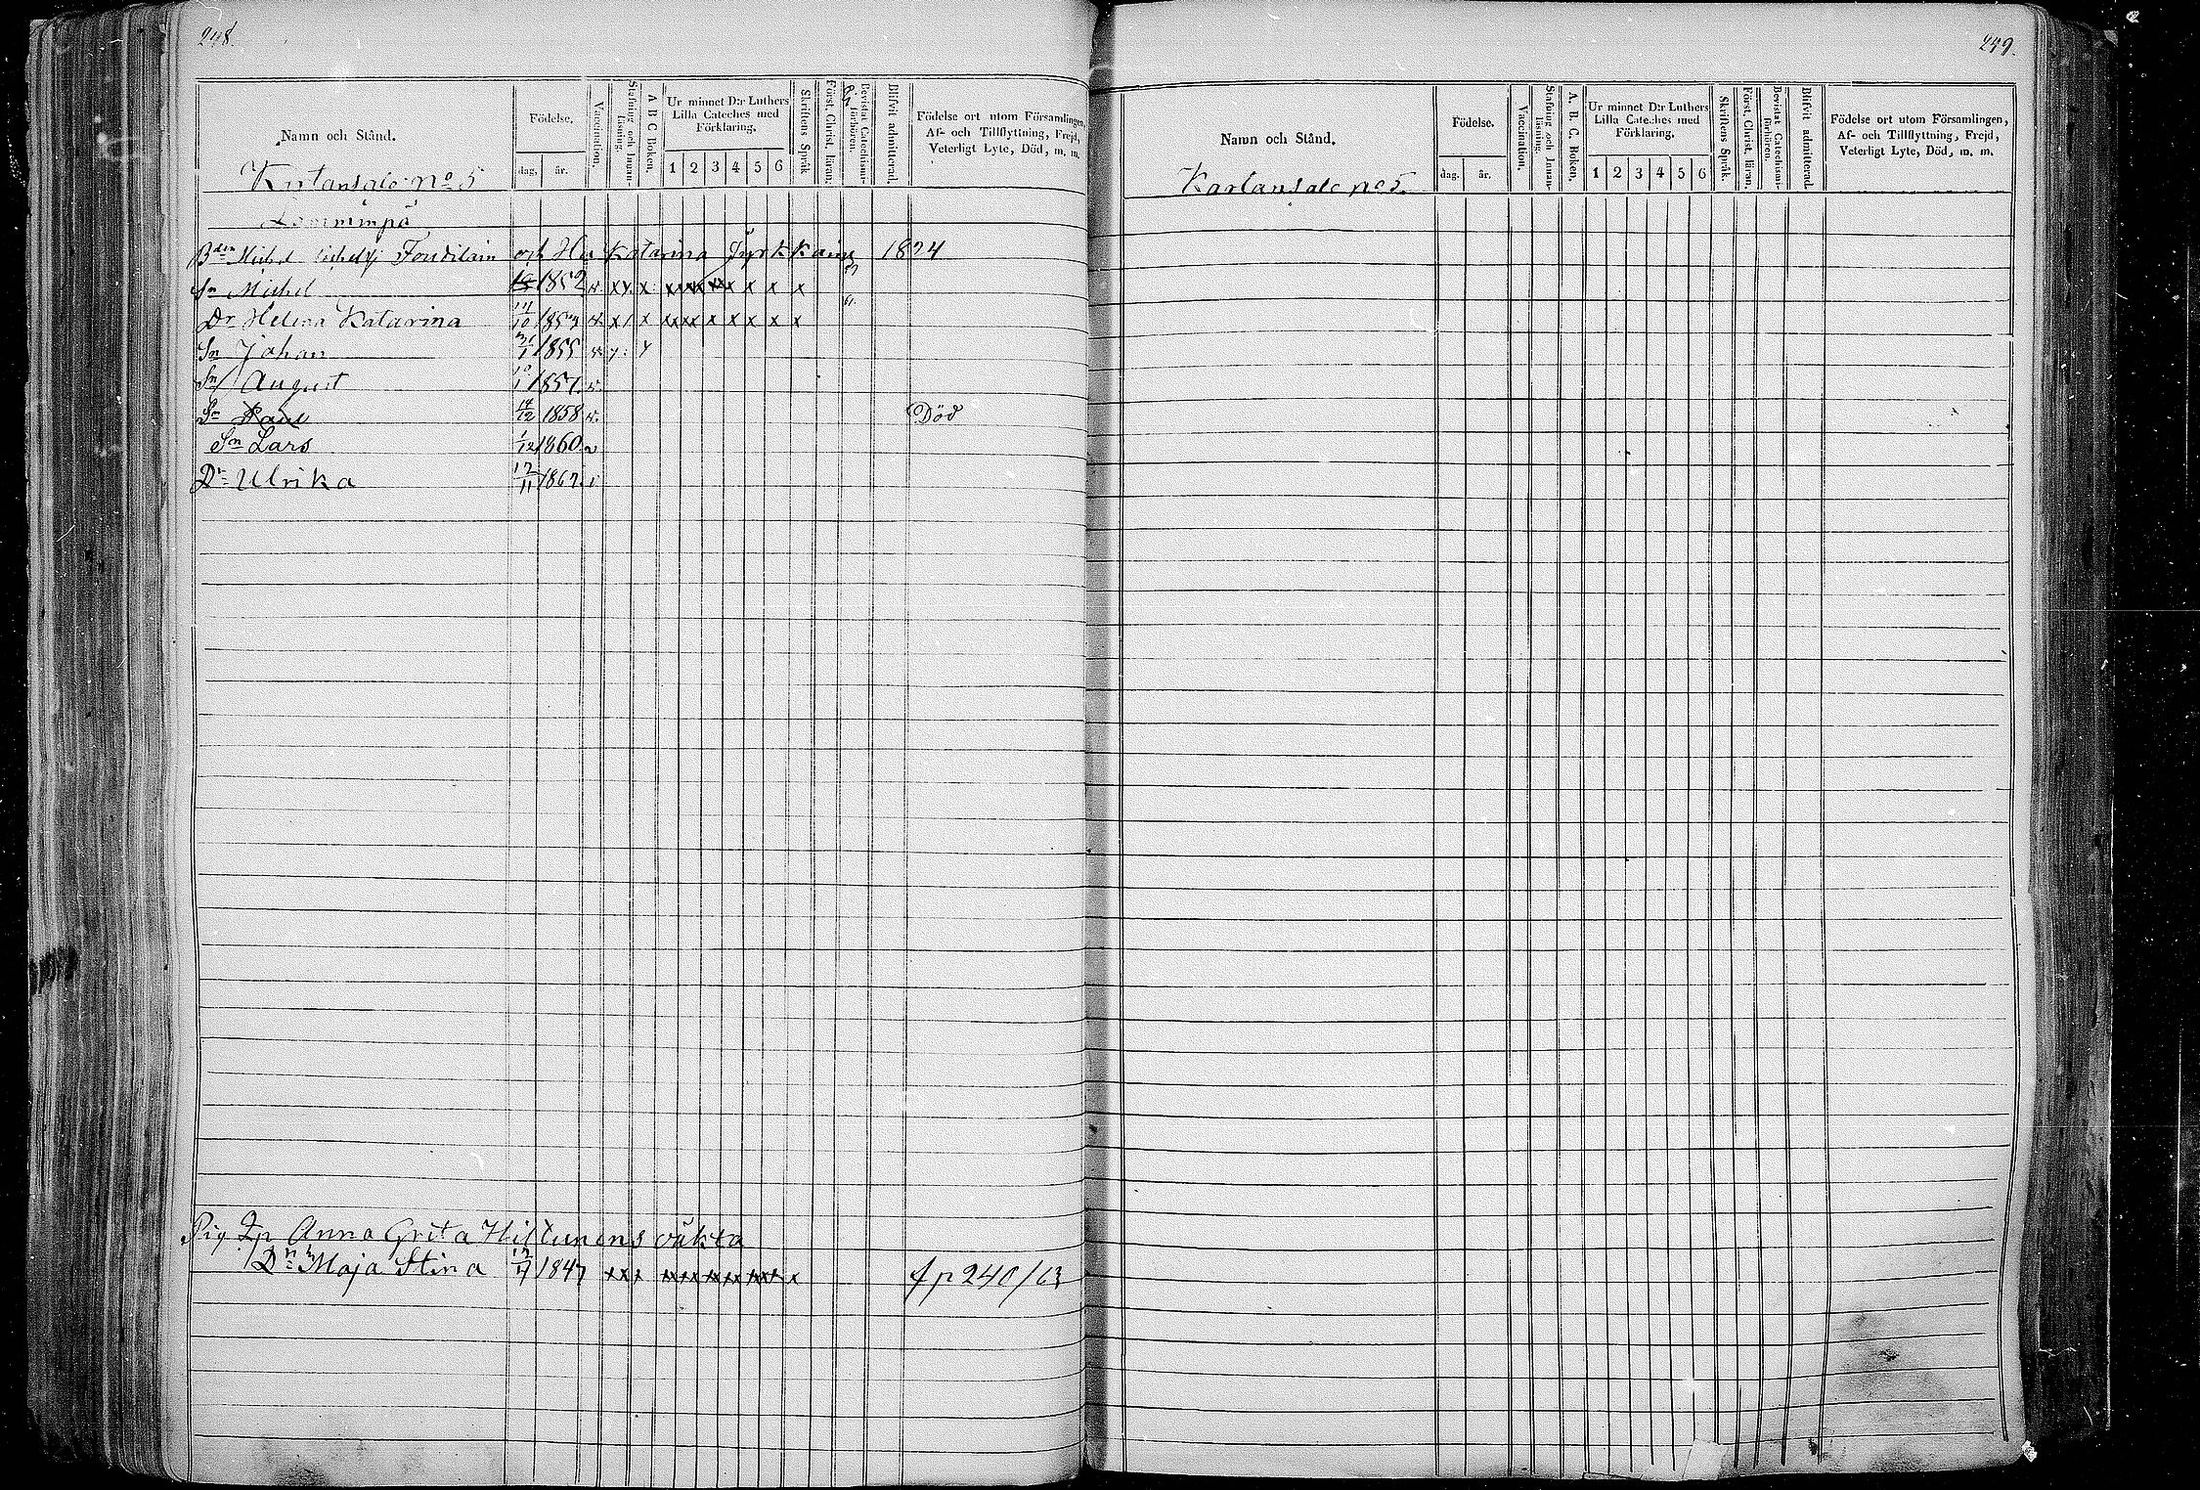 248.
249.
Namn och Stånd.
Födelse.
dag. år.
Vaccination.
Stafning och Innan-läsning.
A B C Boken.
Ur minnet D:r Luthers
Lilla Cateches med
Förklaring.
1 2 3 4 5 6
Skriftens Språk
Först. Christ. läran.
Bevistat Catechismi-förhören.
Blifvit admitterad.
Födelse ort utom Församlingen,
Af- och Tillflyttning, Frejd,
Veterligt Lyte, Död, m. m.
Kartansalo No 5
Bdn Michel Michelss: och Hu Katarina Tyrkkaine 1824
Sn Michel 1852 v x x x x x x x x x x
Dr Helena Katarina 14/10 1853 v x x x x x x x x x
Sn Johan 1855 v
Sn August 1857 v.
Sn 14/12 1858 v. Död
Sn Lars 1/12 1860 v
Dr Ulrika 17/11 1867. v
Pig Anna Grita Hiltunens oäkta
Dr Maja Stina 1847 x x x x x x x x x x fr 240/63
Namn och Stånd.
Födelse.
dag. år.
Vaccination.
Stafning och Innan-läsning.
A. B. C. Boken.
Ur minnet D:r Luthers
Lilla Cateches med
Förklaring.
1 2 3 4 5 6
Skriftens Språk.
Först. Christ. läran.
Bevistat Catechismi-förhören.
Blifvit admitterad.
Födelse ort utom Församlingen,
Af- och Tillflyttning, Frejd,
Veterligt Lyte, Död, m. m.
Kartansalo no 5.